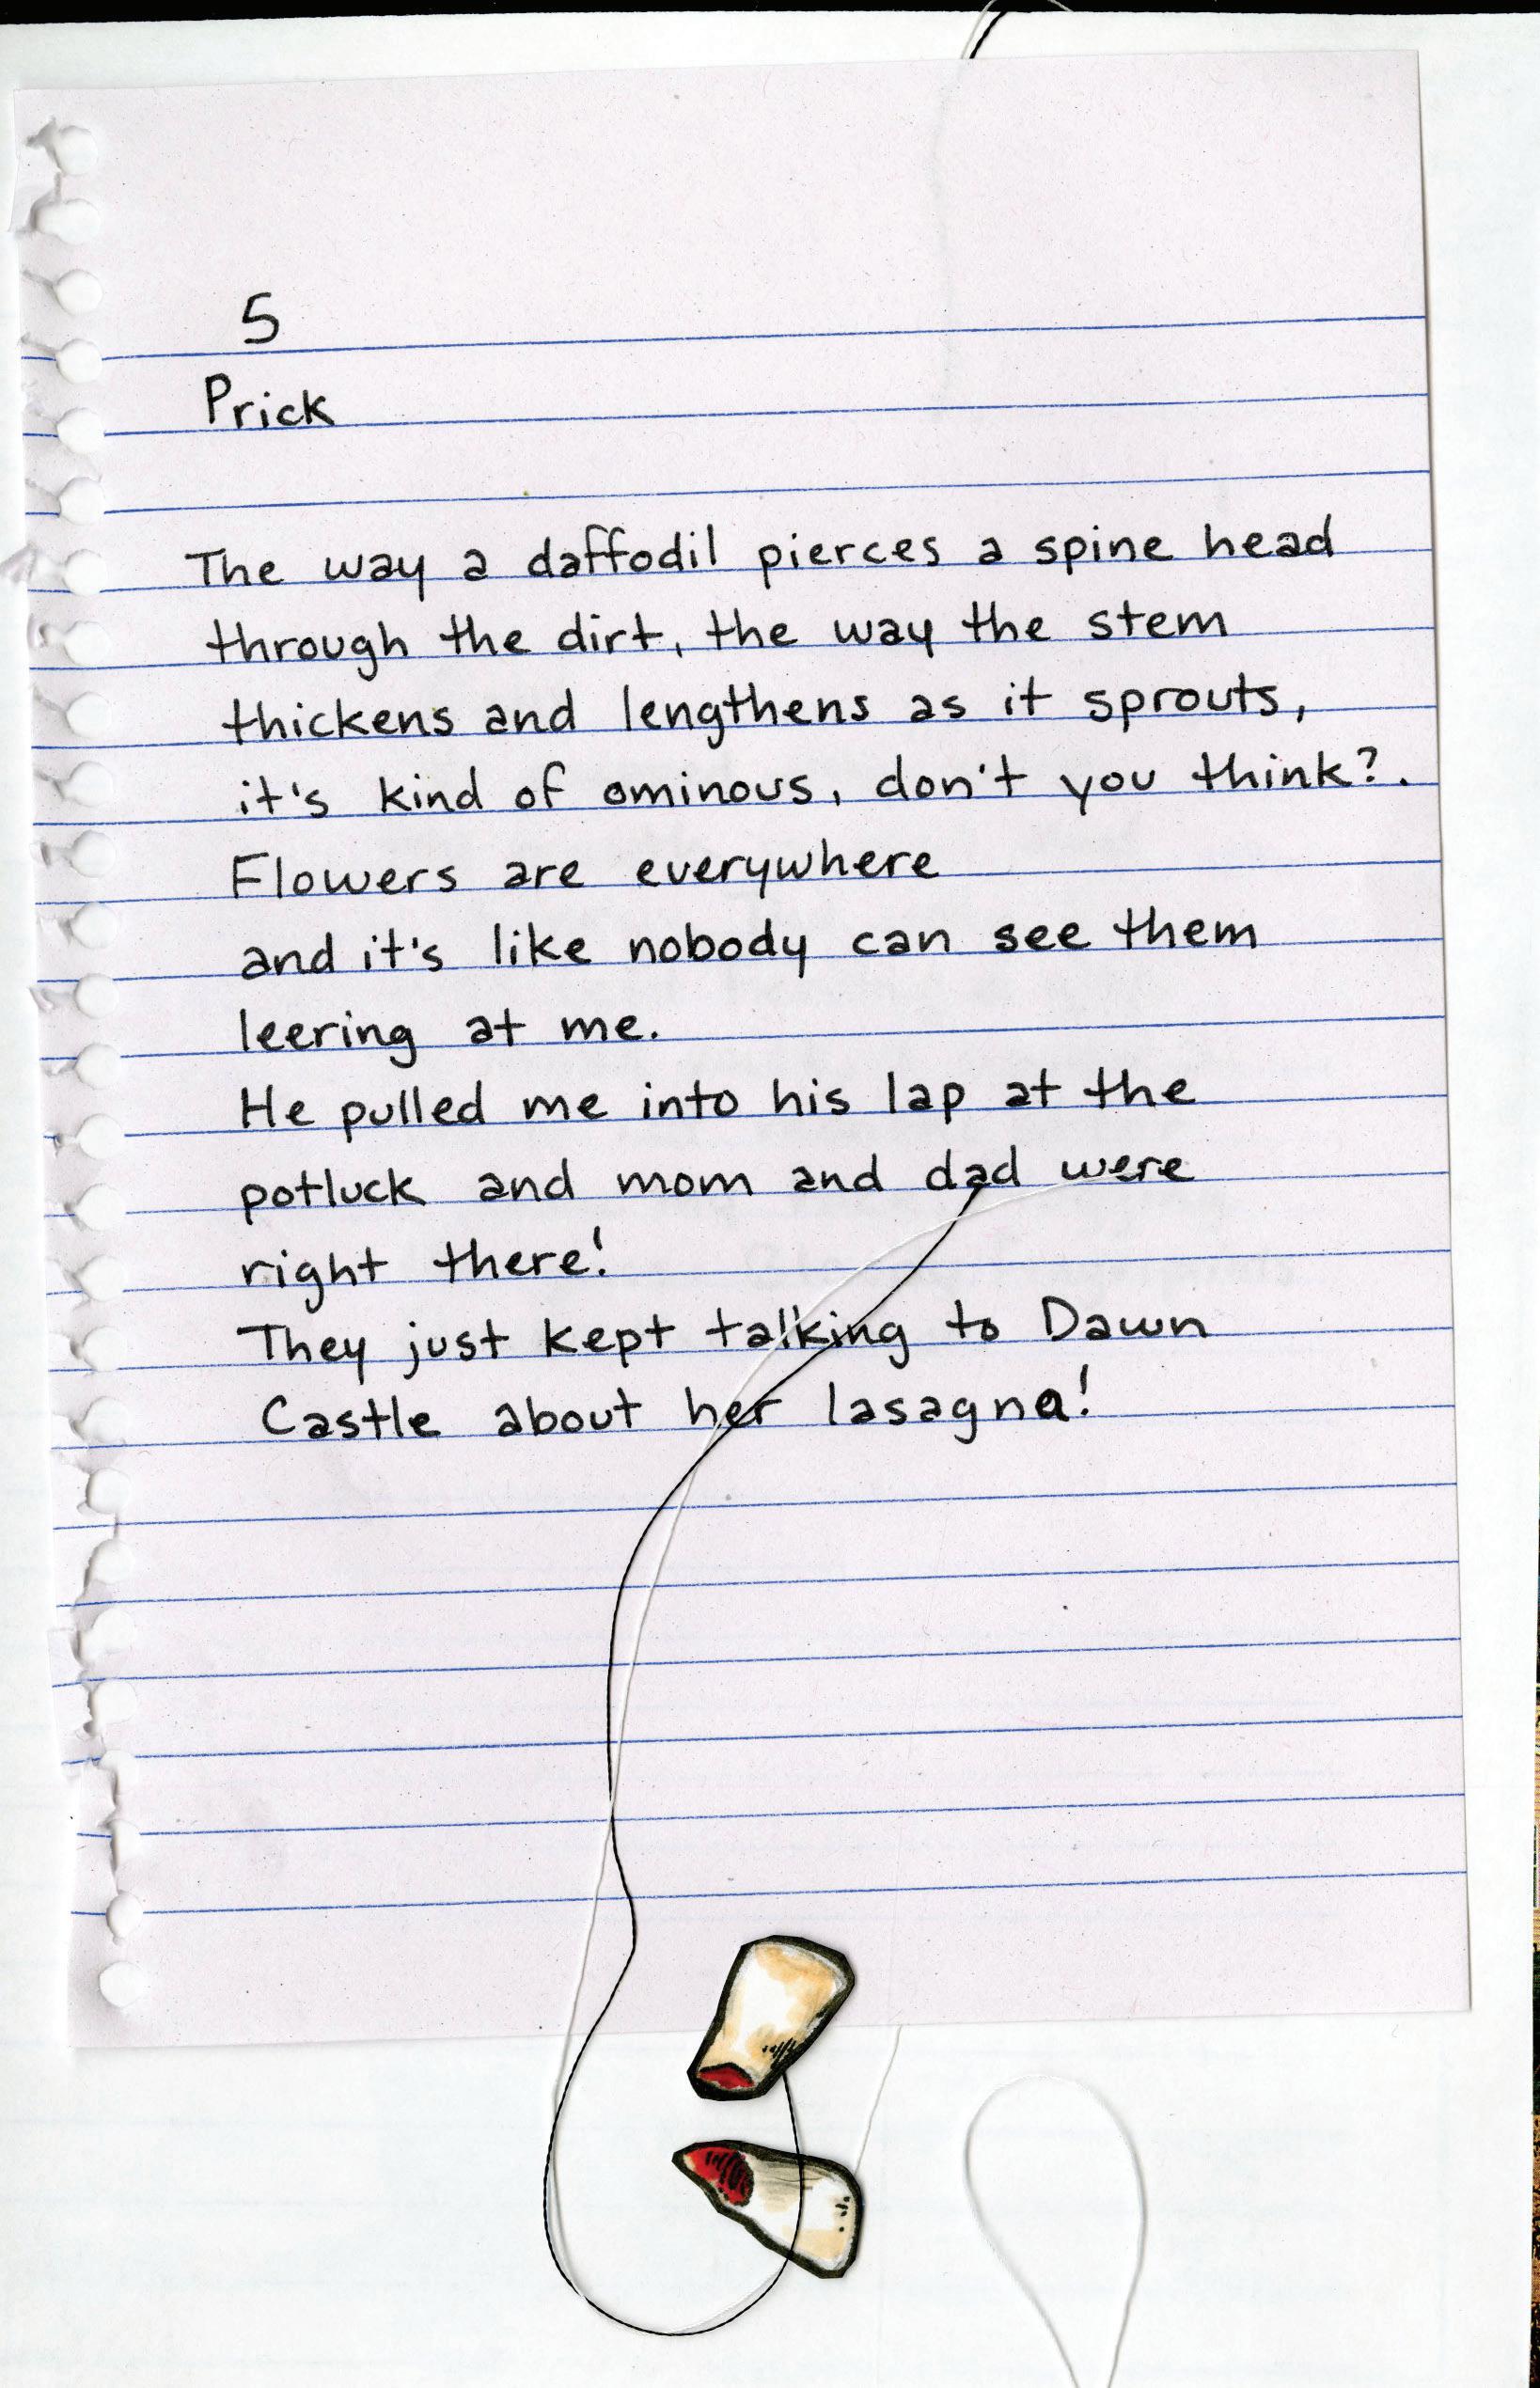 5
Prick
The way a daffodil pierces a spine head
through the dirt, the way the stem
thickens and lengthens as it sprouts,
it's kind of ominous, don't you think?.
Flowers are everywhere
and it's like nobody can see them
leering at me.
He pulled me into his lap at the
potluck and mom and dad were
right there!
They just kept talking to Dawn
Castle about her lasagna!